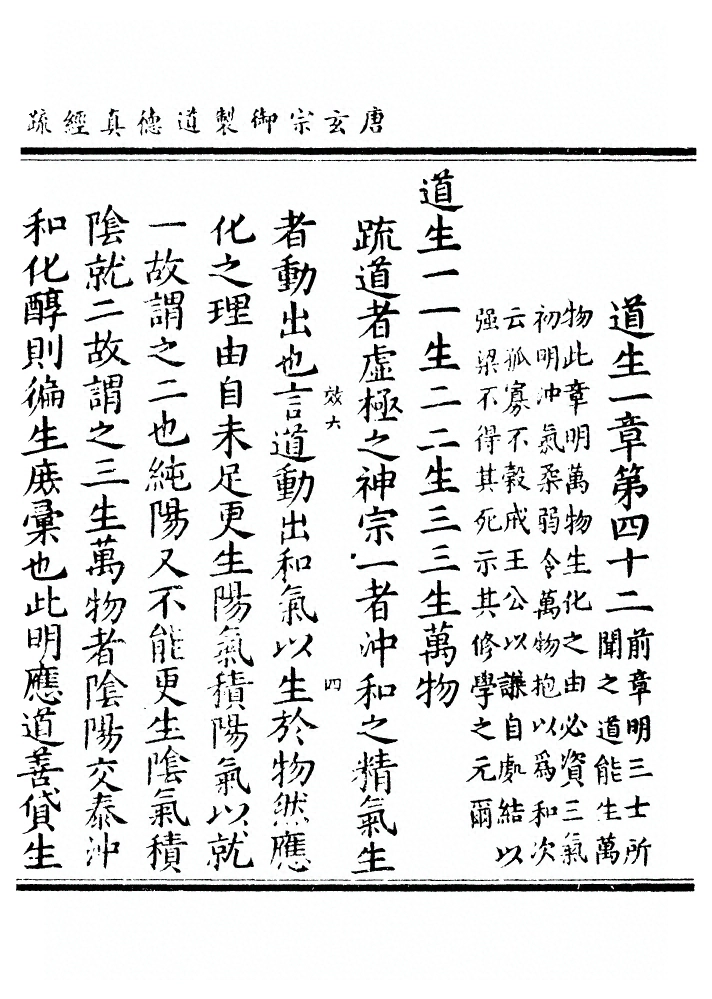 唐玄宗御製道德真經疏
道生一章第四十二
前章明三士所
聞之道能生萬
物此章明萬物生化之由必資三氣
初明沖氣柔弱令萬物抱以爲和次
云孤寡不穀戒王公以謙自處結以
强梁不得其死示其修學之元爾
道生一一生二二生三三生萬物
疏道者虛極之神宗一者沖和之精氣生
效六 四
者動出也言道動出和氣以生於物然應
化之理由自未足更生陽氣積陽氣以就
一故謂之二也純陽又不能更生陰氣積
陰就二故謂之三生萬物者陰陽交泰沖
和化醇則徧生庶彙也此明應道善貸生